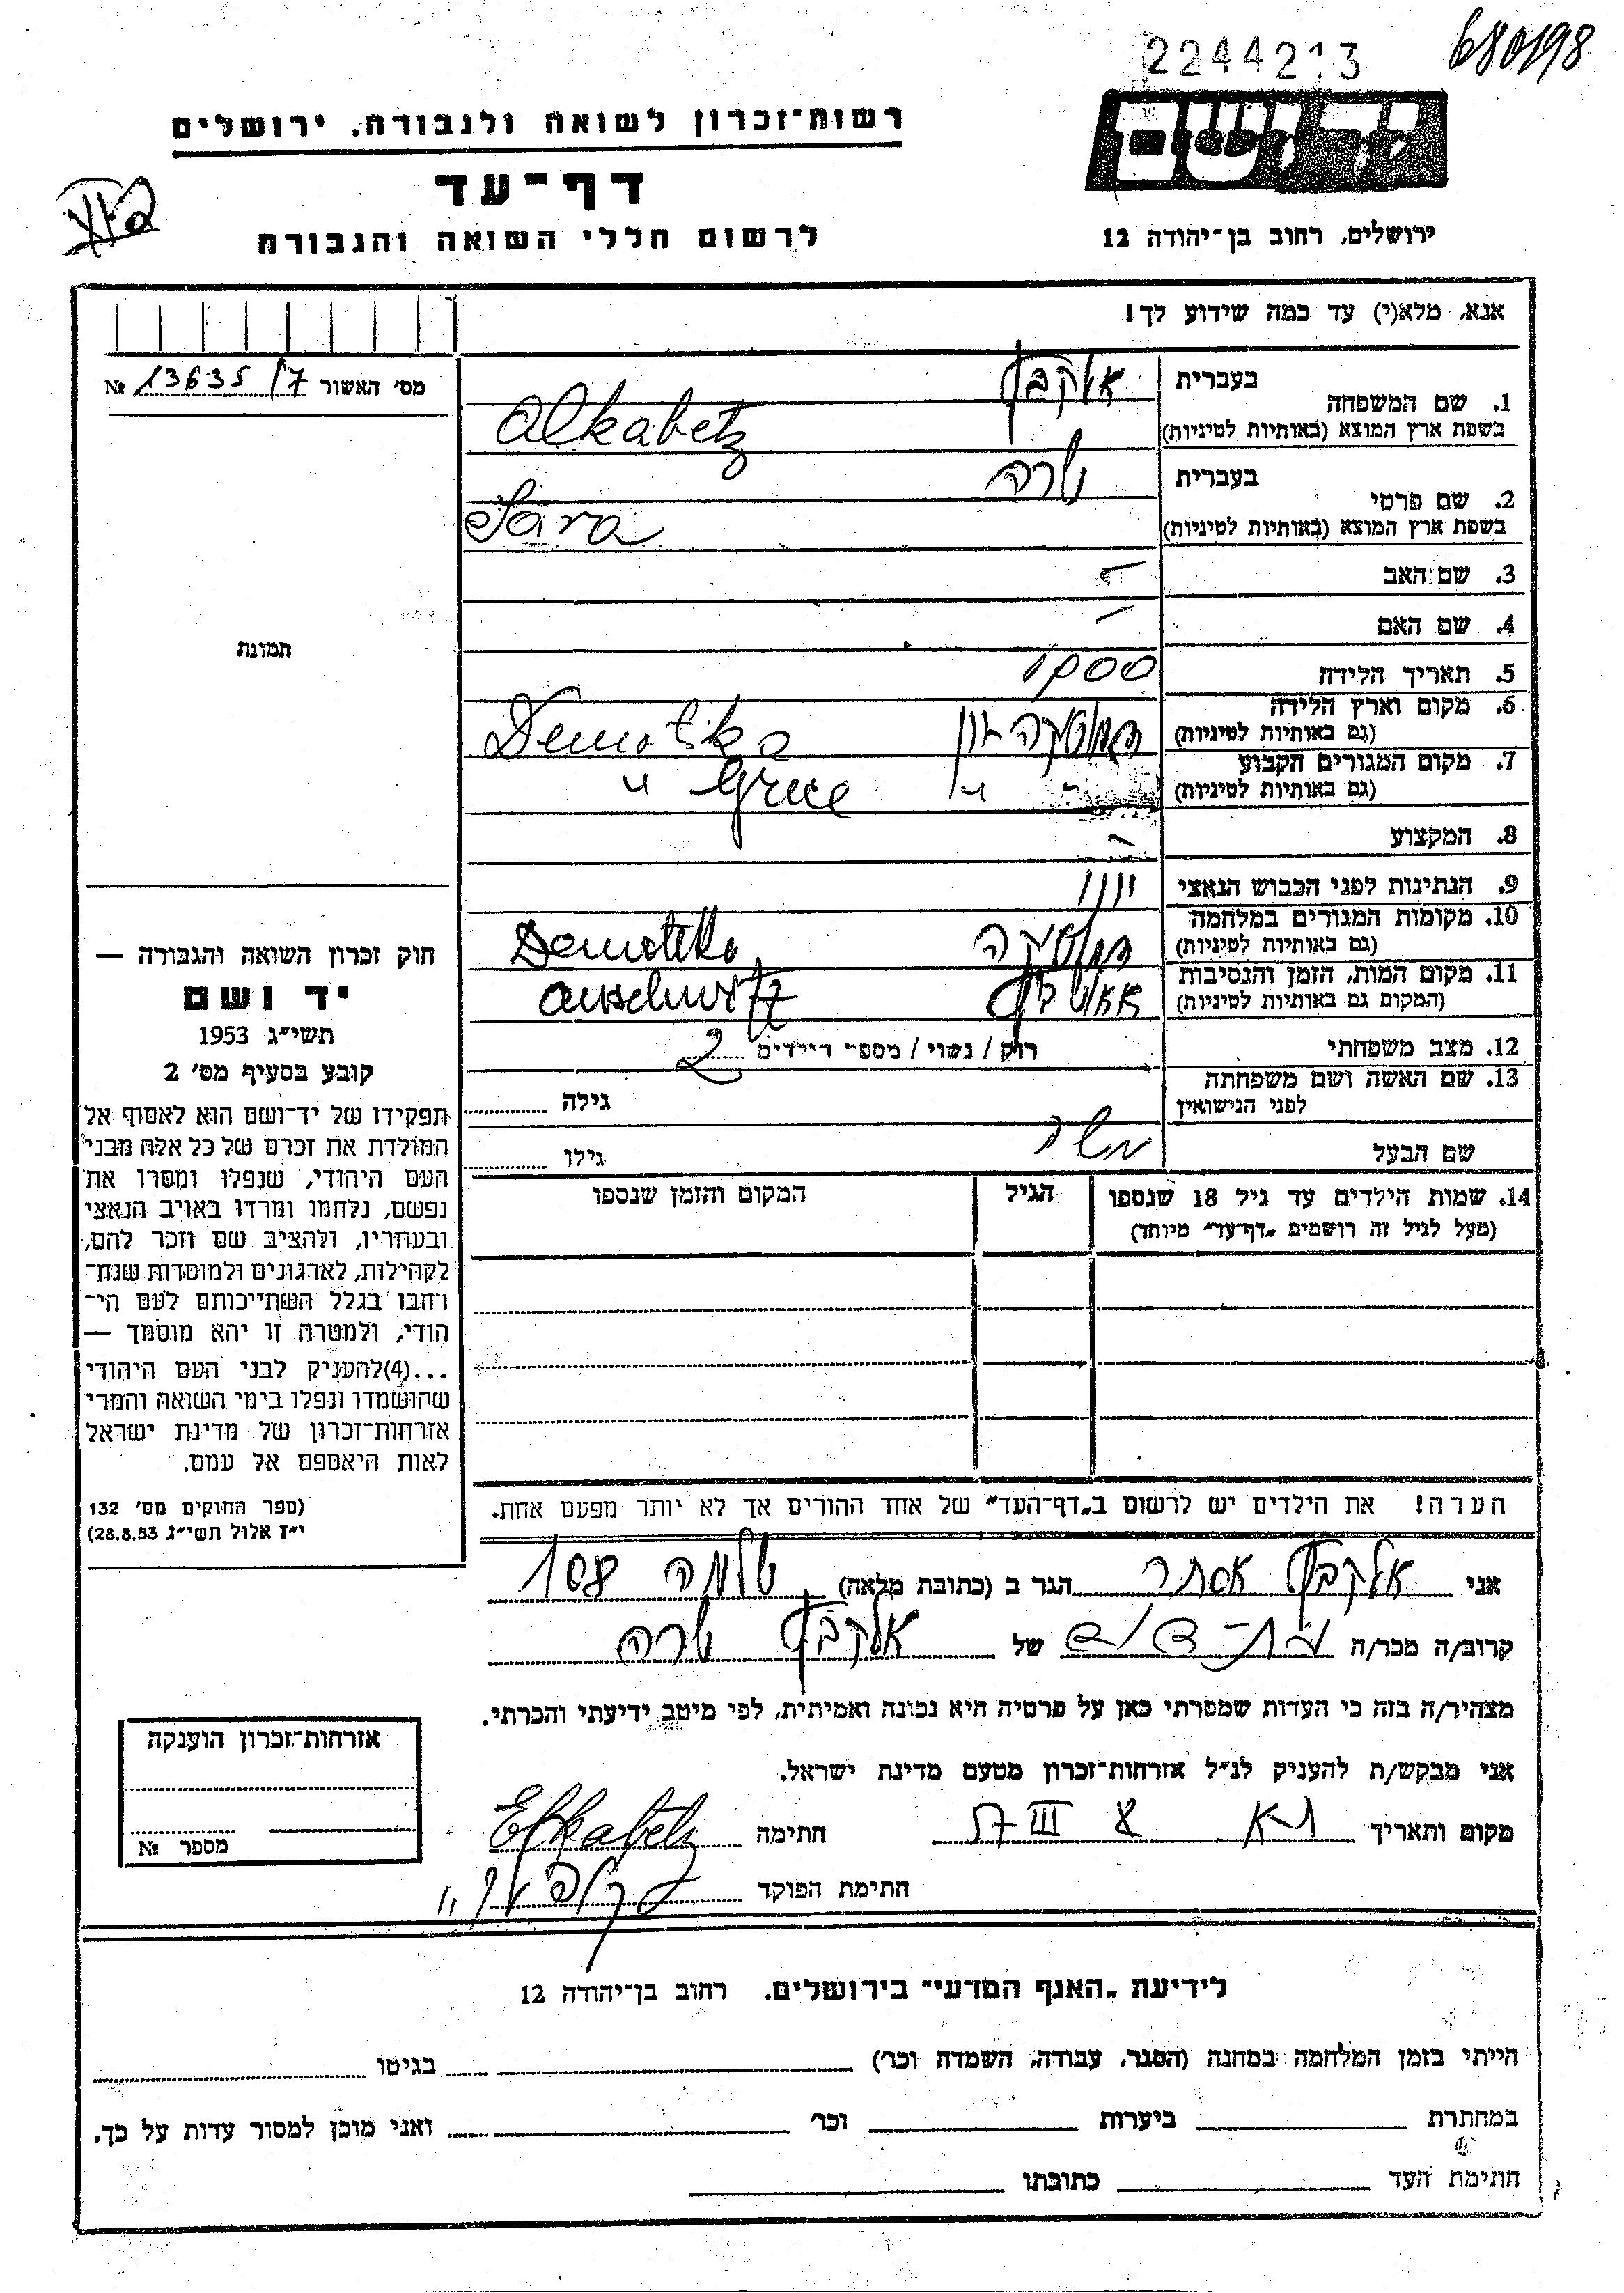 2244213
680198
רשות־זכרון לשואה ולגבורה, ירושלים
יד ושם
דף־עד
לרשום חללי השואה והגבורה
ירושלים, רחוב בן־יהודה 12
אנא, מלא(י) עד כמה שידוע לך!
מס׳ האשור № 13635/7
1. שם המשפחה
בעברית אלקבץ
בשפת ארץ המוצא (באותיות לטיניות) Alkabetz
2. שם פרטי
בעברית שרה
בשפת ארץ המוצא (באותיות לטיניות) Sara
3. שם האב —
4. שם האם —
תמונה
5. תאריך הלידה 1900
6. מקום וארץ הלידה
(גם באותיות לטיניות) דמוטיקה יוון Demotika
7. מקום המגורים הקבוע
(גם באותיות לטיניות) " " Grece "
8. המקצוע —
9. הנתינות לפני הכבוש הנאצי יוון
10. מקומות המגורים במלחמה
(גם באותיות לטיניות) דמוטיקה Demotika
11. מקום המות, הזמן והנסיבות
(המקום גם באותיות לטיניות) אאושביץ Auschwitz
12. מצב משפחתי רווק / נשוי / מספר הילדים 2
13. שם האשה ושם משפחתה
לפני הנישואין גילה
שם הבעל משה גילו
14. שמות הילדים עד גיל 18 שנספו הגיל המקום והזמן שנספו
(מעל לגיל זה רושמים „דף־עד״ מיוחד)
חוק זכרון השואה והגבורה —
יד ושם
תשי״ג 1953
קובע בסעיף מס׳ 2
תפקידו של יד־ושם הוא לאסוף אל
המולדת את זכרם של כל אלה מבני
העם היהודי, שנפלו ומסרו את
נפשם, נלחמו ומרדו באויב הנאצי
ובעוזריו, ולהציב שם וזכר להם,
לקהילות, לארגונים ולמוסדות שנח־
רבו בגלל השתייכותם לעם הי־
הודי, ולמטרה זו יהא מוסמך —
...(4) להעניק לבני העם היהודי
שהושמדו ונפלו בימי השואה והמרי
אזרחות־זכרון של מדינת ישראל
לאות היאספם אל עמם.
(ספר החוקים מס׳ 132
י״ז אלול תשי״ג 28.8.53)
הערה! את הילדים יש לרשום ב„דף־העד״ של אחד ההורים אך לא יותר מפעם אחת.
אני אלקבץ אסתר הגר ב (כתובת מלאה) שלמה 108
קרוב/ה מכר/ה בת־דודים של אלקבץ שרה
מצהיר/ה בזה כי העדות שמסרתי כאן על פרטיה היא נכונה ואמיתית, לפי מיטב ידיעתי והכרתי.
אני מבקש/ת להעניק לנ״ל אזרחות־זכרון מטעם מדינת ישראל.
מקום ותאריך ת־א 8 III 57 חתימה Elkabetz
חתימת הפוקד
אזרחות־זכרון הוענקה
מספר №
לידיעת „האגף המדעי״ בירושלים. רחוב בן־יהודה 12
הייתי בזמן המלחמה במחנה (הסגר, עבודה, השמדה וכו׳) בגיטו
במחתרת ביערות וכו׳ ואני מוכן למסור עדות על כך.
חתימת העד כתובתו